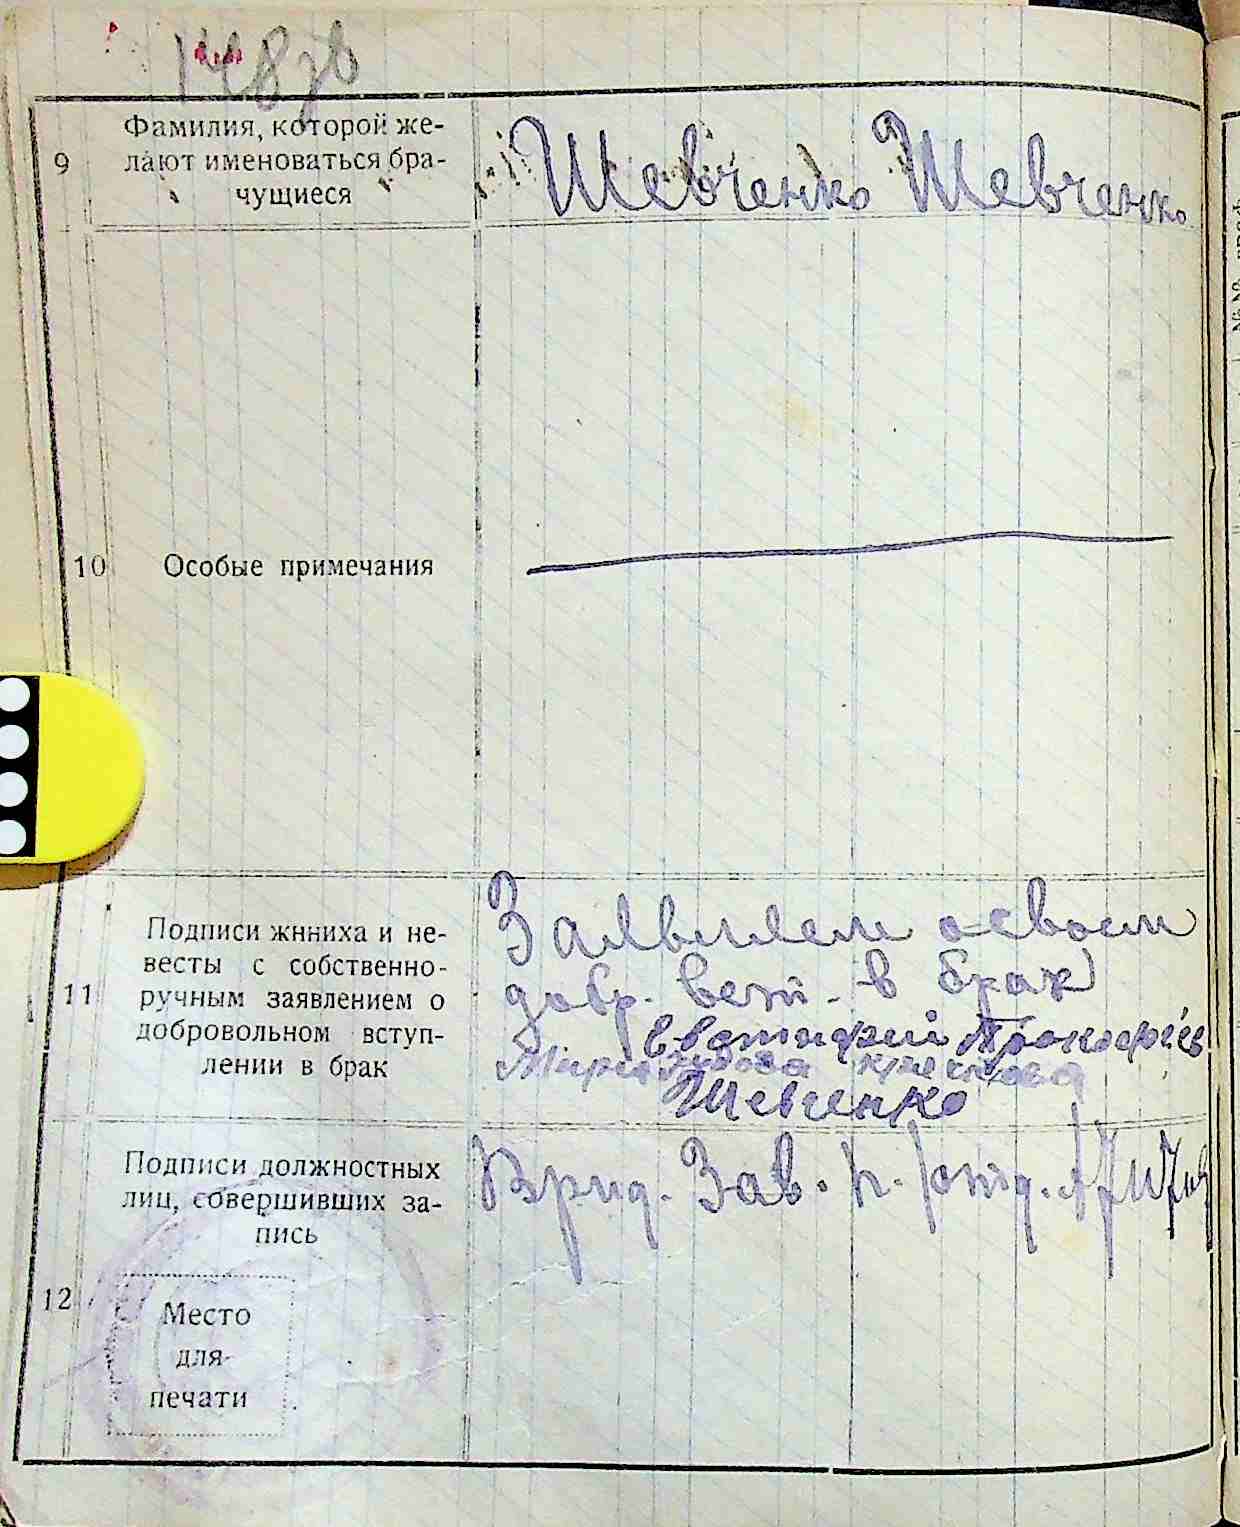 148зв
9 Фамилия, которой же-
лают именоваться бра-
чущиеся
Шевченко Шевченко
10 Особые примечания
11 Подписи жниха и не-
весты с собственно-
ручным заявлением о
добровольном вступ-
лении в брак
Заявляем о своем
добр. вст. в брак
Евстифий Прокофьев
Шевченко
12 Подписи должностных
лиц, совершивших за-
пись
Врид. Зав. п.
Место
для
печати